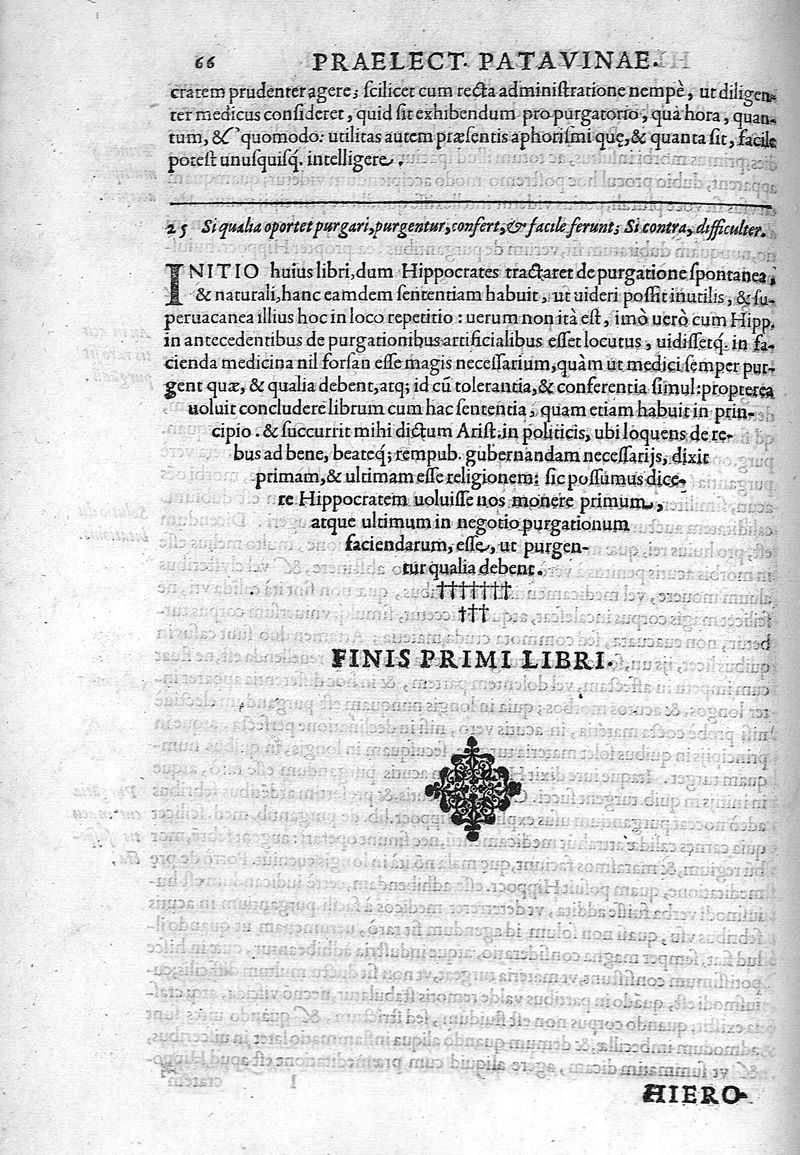 66 PRAELECT. PATAVINAE.
cratem prudenter agere; scilicet cum recta administratione nempè, ut diligen-
ter medicus consideret, quid sit exhibendum pro purgatorio, qua hora, quan-
tum, & quomodo: utilitas autem præsentis aphorismi quę, & quanta sit, facile
potest unusquisq́. intelligere.
25 Si qualia oportet purgari, purgentur, confert, & facile ferunt; Si contra, difficulter.
INITIO huius libri, dum Hippocrates tractaret de purgatione spontanea,
& naturali, hanc eamdem sententiam habuit, ut uideri possit inutilis, & su-
peruacanea illius hoc in loco repetitio: uerum non ità est, imò uerò cum Hipp.
in antecedentibus de purgationibus artificialibus esset locutus, uidissetq́. in fa-
cienda medicina nil forsan esse magis necessarium, quàm ut medici semper pur-
gent quæ, & qualia debent, atq; id cũ tolerantia, & conferentia simul: propterea
uoluit concludere librum cum hac sententia, quam etiam habuit in prin-
cipio. & succurrit mihi dictum Arist. in politicis, ubi loquens de re-
bus ad bene, beateq́; rempub. gubernandam necessarijs, dixit
primam, & ultimam esse religionem: sic possumus dice-
re Hippocratem uoluisse nos monere primum,
atque ultimum in negotio purgationum
faciendarum, esse, ut purgen-
tur qualia debent.
†††††††
†††
FINIS PRIMI LIBRI.
HIERO-